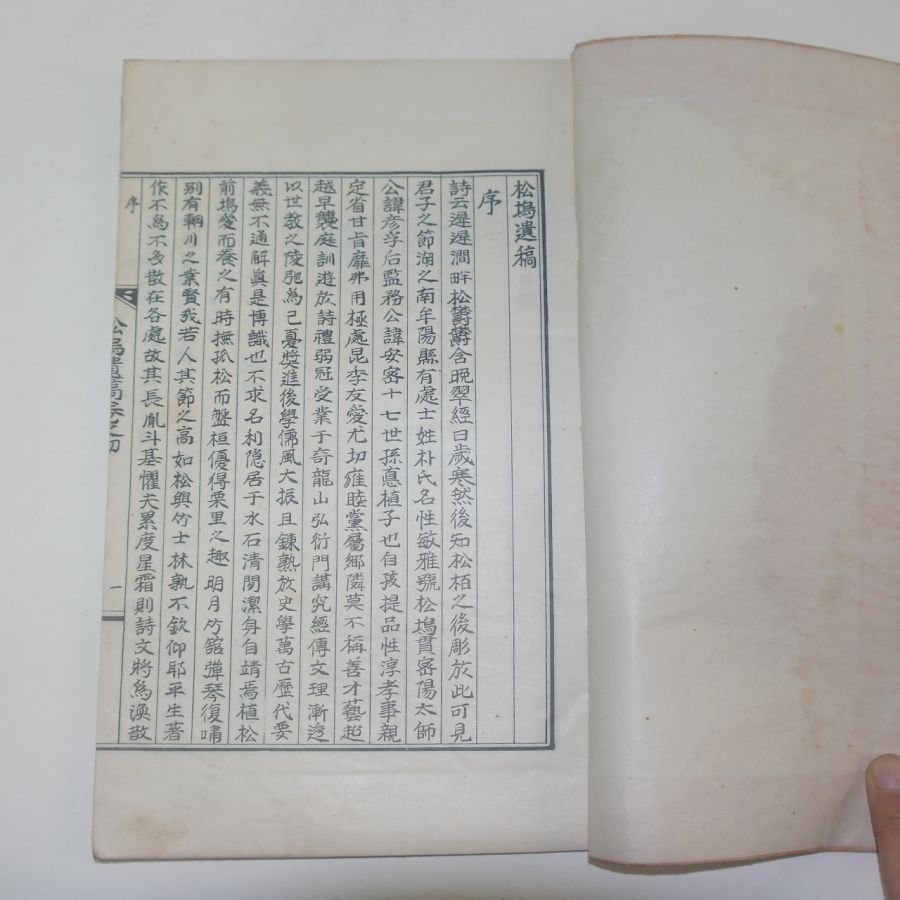 松塢遺稿
序
詩云遲遲澗畔松鬱鬱含晩翠經曰歲寒然後知松栢之後彫於此可見
君子之節湖之南牟陽縣有處士姓朴氏名性敏雅號松塢貫密陽太師
公諱彦孚后監務公諱安密十七世孫悳植子也自孩提品性淳孝事親
定省甘旨靡弗用極處昆季友愛尤切雍睦黨屬鄉隣莫不稱善才藝超
越早襲庭訓遊於詩禮弱冠受業于奇龍山弘衍門講究經傳文理漸邃
以世敎之陵弛爲己憂奬進後學儒風大振且鍊熟於史學萬古歷代要
義無不通解眞是博識也不求名利隐居于水石清閒潔身自靖焉植松
前塢愛而養之有時撫孤松而盤桓優得栗里之趣明月竹館彈琴復嘯
别有輞川之業賢哉若人其節之高如松與竹士林孰不欽仰耶平生著
作不爲不多散在各處故其長胤斗基懼夫累度星霜則詩文將爲渙散
序
松塢遺稿卷之初
一